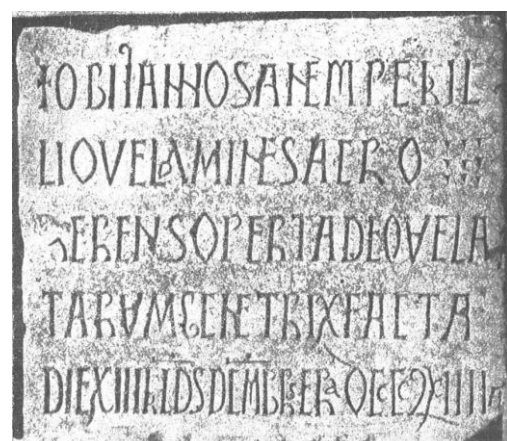 +OBIIT ANNOSA NEMPE RIL
LIO VELAMINE SACRO
GERENS OPERTA DEO VELA
TARVM GENETRIX FACTA
DIE XIII KLDS DCMBRS ERA